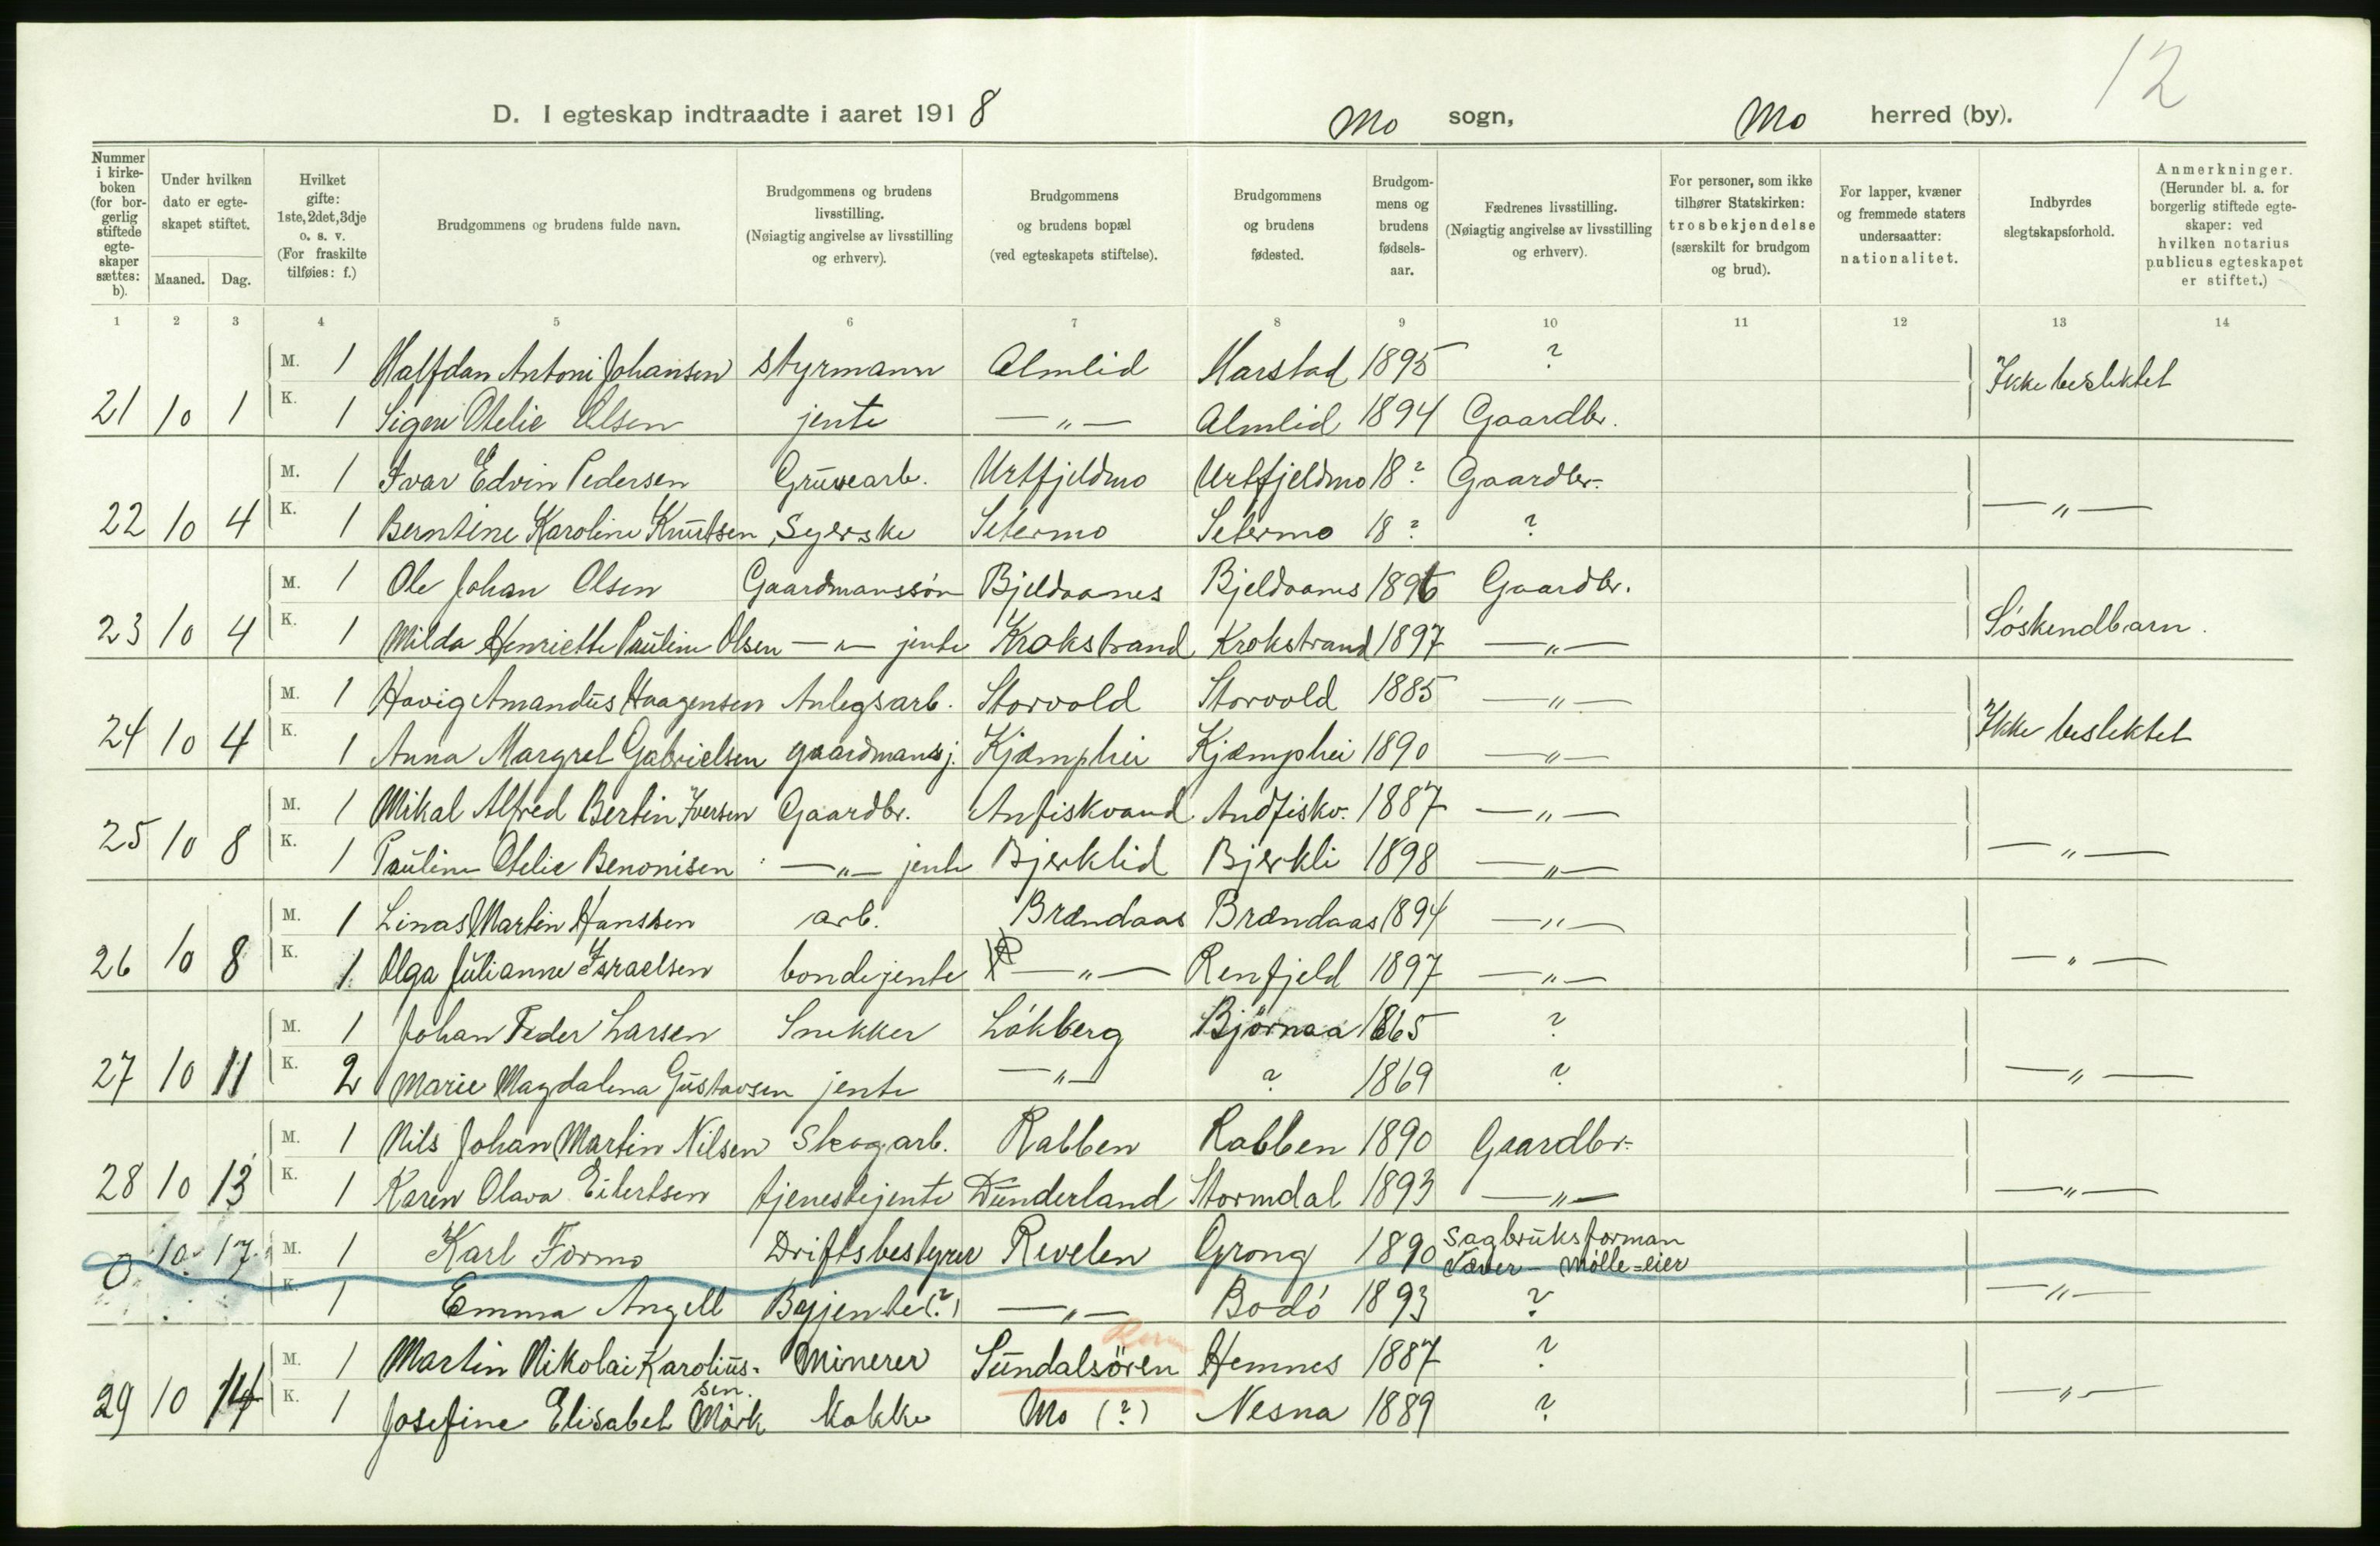 12
D. I egteskap indtraadte i aaret 1918 Mo sogn, Mo herred (by).
Nummer i kirke-boken (for bor-gerlig stiftede egte-skaper sættes: b).
Under hvilken dato er egte-skapet stiftet.
Maaned. Dag.
Hvilket gifte: 1ste, 2det, 3dje o. s. v. (For fraskilte tilføies: f.)
Brudgommens og brudens fulde navn.
Brudgommens og brudens livsstilling. (Nøiagtig angivelse av livsstilling og erhverv).
Brudgommens og brudens bopæl (ved egteskapets stiftelse).
Brudgommens og brudens fødested.
Brudgom-mens og brudens fødsels-aar.
Fædrenes livsstilling. (Nøiagtig angivelse av livsstilling og erhverv).
For personer, som ikke tilhører Statskirken: trosbekjendelse (særskilt for brudgom og brud).
For lapper, kvæner og fremmede staters undersaatter: nationalitet.
Indbyrdes slegtskapsforhold.
Anmerkninger. (Herunder bl. a. for borgerlig stiftede egte-skaper: ved hvilken notarius publicus egteskapet er stiftet.)
1 2 3 4 5 6 7 8 9 10 11 12 13 14
M. 1 Halfdan Antoni Johansen styrmann Almlid Harstad 1895 ? Ikke besliktet
21 10 1 K. 1 Signe Otelie Olsen jente —„— Almlid 1894 Gaardbr.
M. 1 Ivar Edvin Pedersen Gruvearb. Urtfjeldmo Urtfjeldmo 18? Gaardbr.
22 10 4 K. 1 Berntine Karoline Knutsen Syerske Setermo Setermo 18? ? —„—
M. 1 Ole Johan Olsen Gaardmanssön Bjeldaanes Bjeldaanes 1896 Gaardbr.
23 10 4 K. 1 Milda Henriette Pauline Olsen —„— jente Krokstrand Krokstrand 1897 —„— Söskendbarn.
M. 1 Havig Amandus Haagensen Anlegsarb. Storvold Storvold 1885 —„—
24 10 4 K. 1 Anna Margret Gabrielsen gaardmansj. Kjæmphei Kjæmphei 1890 —„— Ikke besliktet
M. 1 Mikal Alfred Bertin Iversen Gaardbr. Anfiskvand Andfiskv. 1887 —„—
25 10 8 K. 1 Pauline Otelie Benonisen —„— jente Bjerklid Bjerkli 1898 —„— —„—
M. 1 Linas Martin Hanssen arb. Brændaas Brændaas 1894 —„—
26 10 8 K. 1 Olga Julianne Israelsen bondejente —„— Renfjeld 1897 —„— —„—
M. 1 Johan Peder Larsen Snekker Lökberg Björnaa 1865 ?
27 10 11 K. 2 Marie Magdalena Gustavsen jente —„— ? 1869 ? —„—
M. 1 Nils Johan Martin Nilsen Skogarb. Rabben Rabben 1890 Gaardbr.
28 10 13 K. 1 Karen Olava Eilertsen tjenestejente Dunderland Stormdal 1893 —„— —„—
10 17 M. 1 Karl Formo Driftsbestyrer Revelen Grong 1890 Sagbruksforman
Mölle-eier
0 K. 1 Emma Angell Byjente(?) —„— Bodö 1893 ? —„—
M. 1 Martin Nikolai Karolius- Minerer Sundalsören Hemnes 1887 ?
sen.
29 10 14 K. 1 Josefine Elisabet Mörk Kokke Mo (?) Nesna 1889 ? —„—